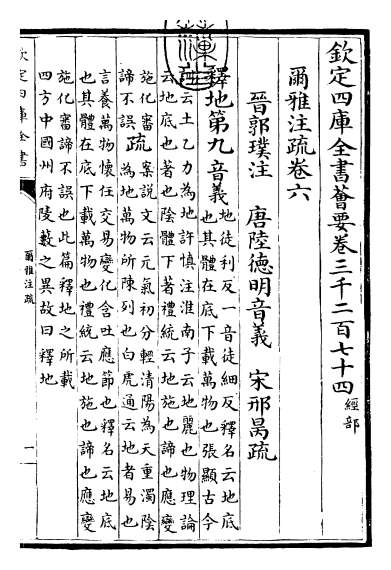 欽定四庫全書薈要卷三千二百七十四 經部
爾雅注疏卷六
晉郭璞注 唐陸德明音義 宋邢昺疏
釋地第九音義
地徒利反一音徒細反釋名云地底
也其體在底下載萬物也張顯古今
訓云土乙力為地許慎注淮南子云地麗也物理論
云地底也著也陰體下著禮統云地施也諦也應變
施化審
諦不誤
疏
案說文云元氣初分輕清陽為天重濁陰
為地萬物所陳列也白虎通云地者易也
言養萬物懷任交易變化含吐應節也釋名云地底
也其體在底下載萬物也禮統云地施也諦也應變
施化審諦不誤也此篇釋地之所載
四方中國州府陵藪之異故曰釋地
欽定四庫全書
爾雅注疏
一